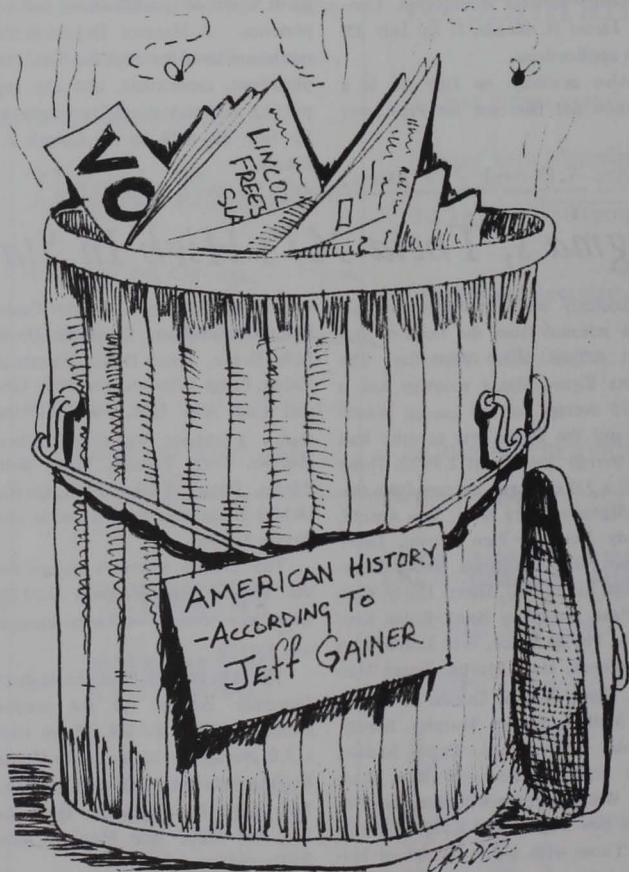 VO
LINCOL
FREES
SLA
AMERICAN HISTORY
-ACCORDING TO
JEFF GAINER